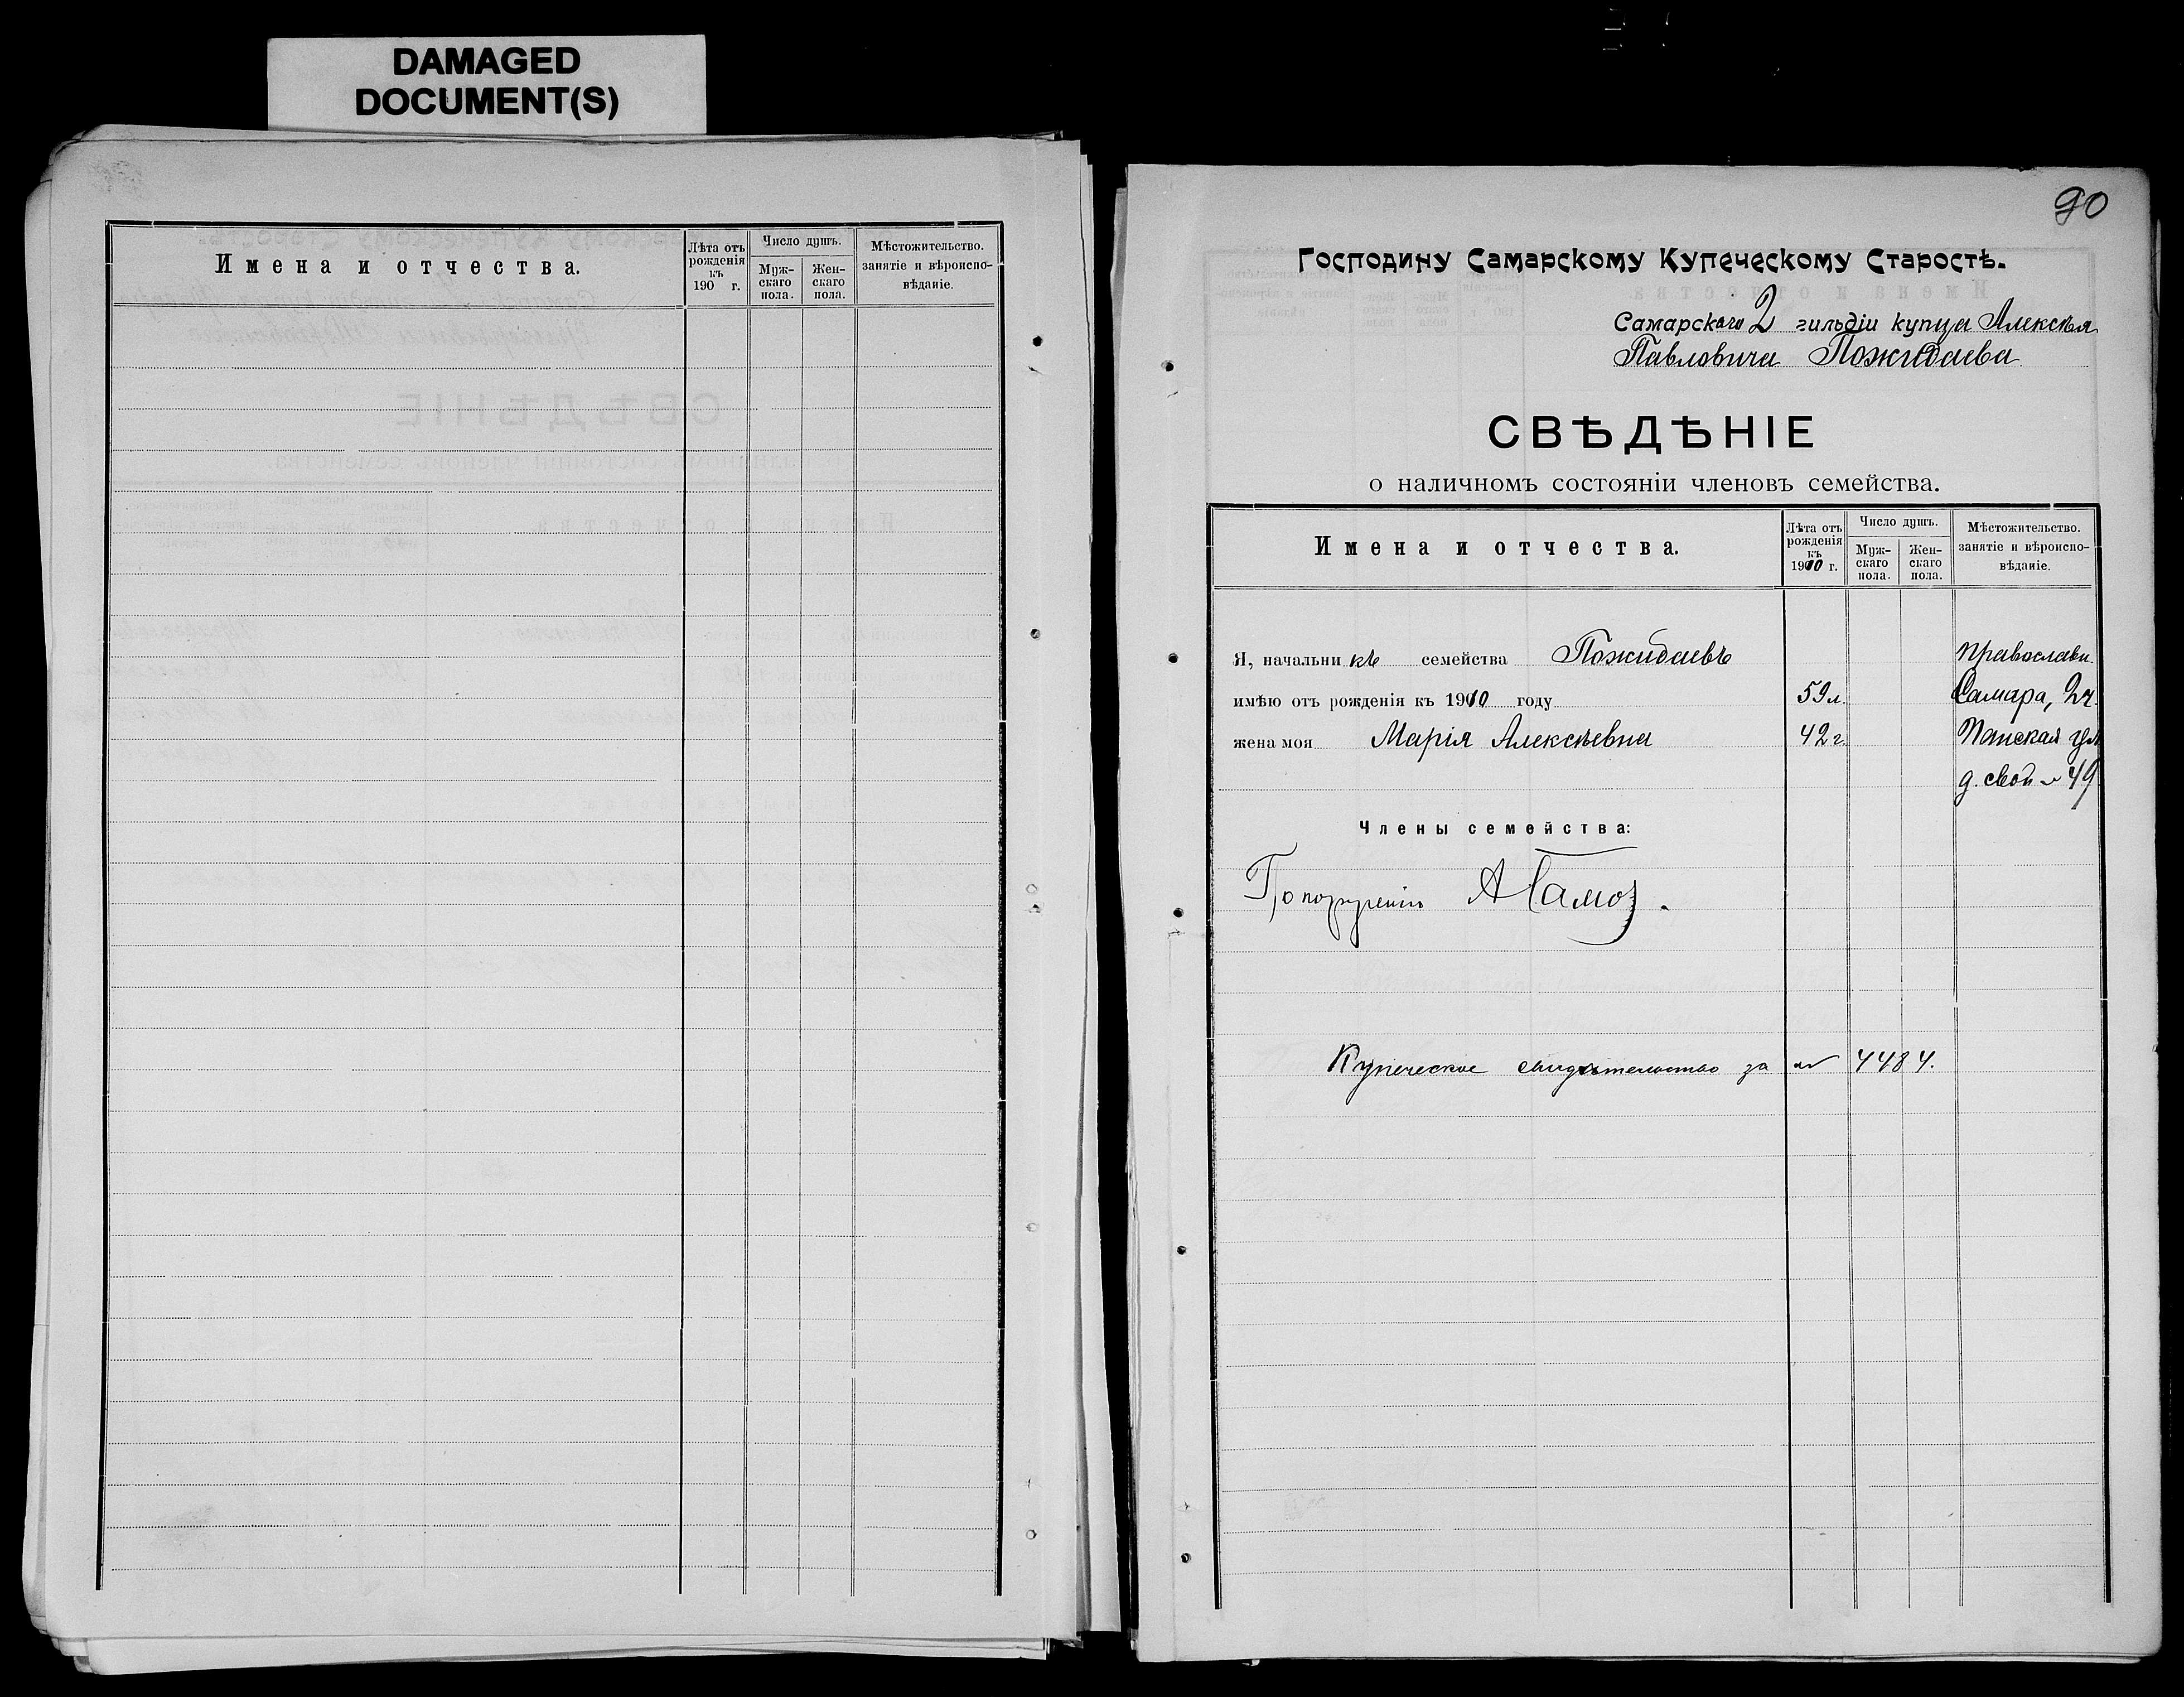 DAMAGED
DOCUMENT(S)
Имена и отчества.
Лѣта отъ рожденія къ 190 г.
Число душъ.
Мужскаго пола.
Женскаго пола.
Мѣстожительство. занятіе и вѣроисповѣданіе.
90
Господину Самарскому Купеческому Старостѣ.
Самарскаго 2 гильдіи купца Алексѣя
Павловича Пожидаева
СВѢДѢНІЕ
о наличномъ состояніи членовъ семейства.
Имена и отчества.
Лѣта отъ рожденія къ 1910 г.
Число душъ.
Мужскаго пола.
Женскаго пола.
Мѣстожительство. занятіе и вѣроисповѣданіе.
Я, начальникъ семейства Пожидаевъ православн.
имѣю отъ рожденія къ 1910 году 59 л. Самара, 2 ч.
жена моя Марія Алексѣевна 42 г. Панская ул.
д. свой № 49
Члены семейства:
По порученію
Купеческое свидѣтельство за № 4484.